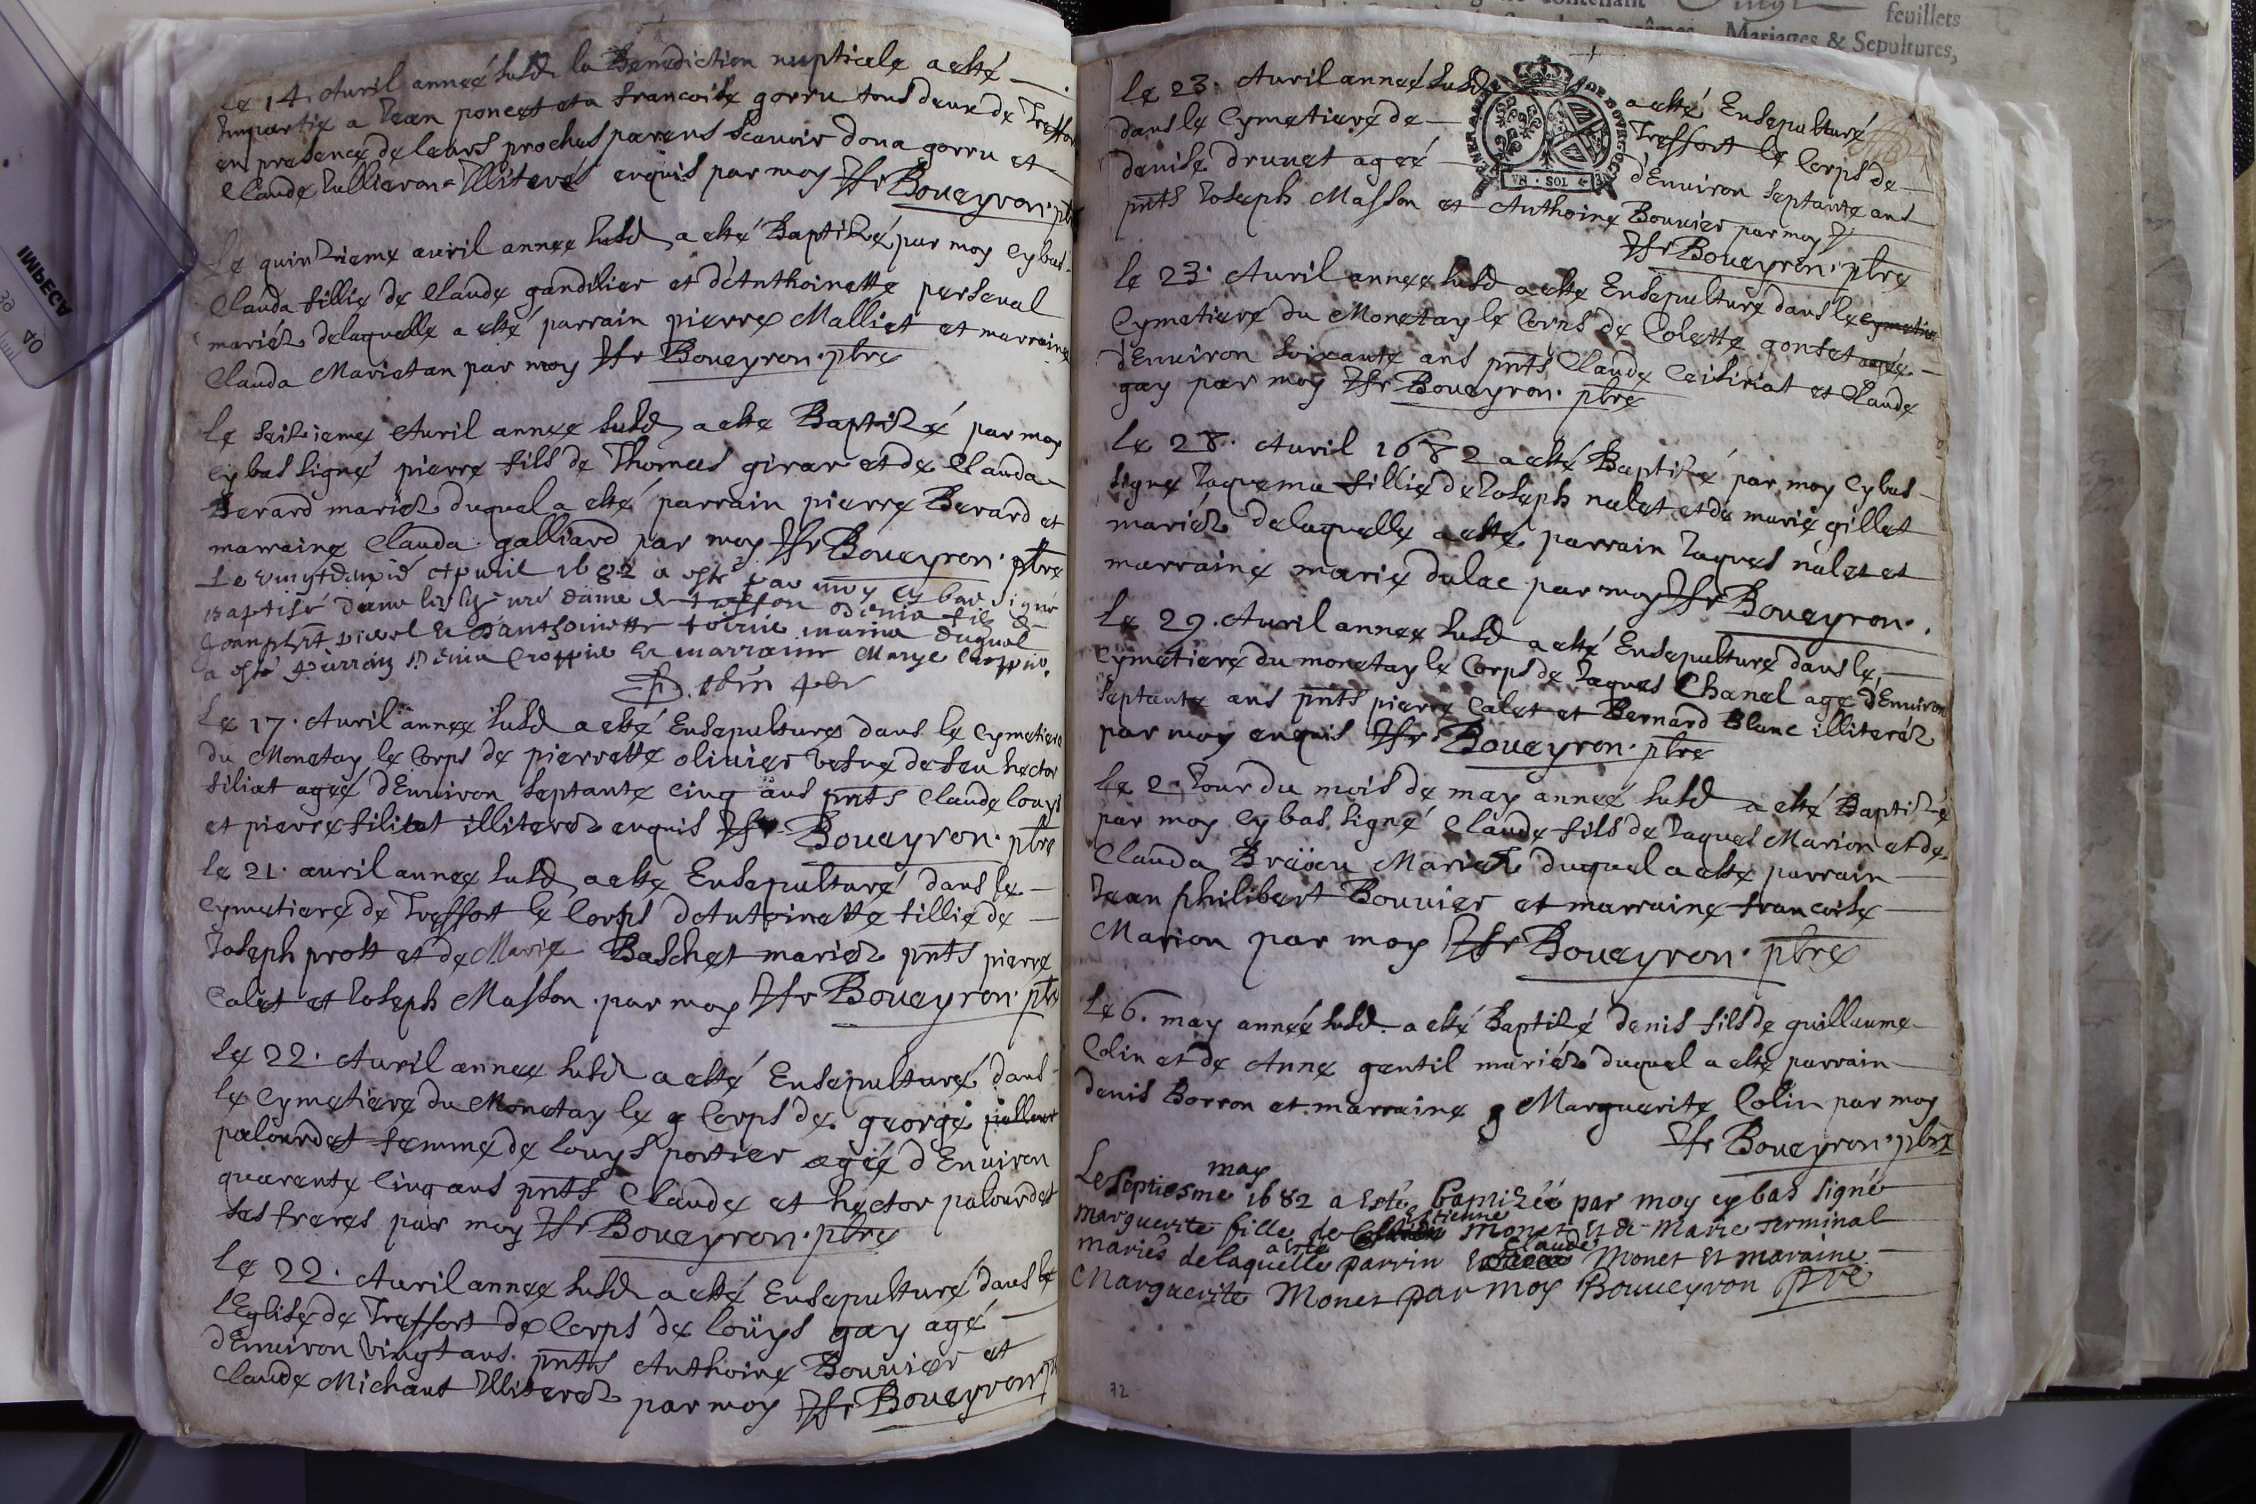 Le 14. Avril anneé susd la Benediction nuptiale a esté
Impartie a Jean poncet et a francoise gorru tous deux de Treffort
en presence de leurs prochesparens scavoir dona gorru et
Claude Jullieron Illiterés enquis par moy Boueyron. pbr
Le quinzieme avril annee susd a esté Baptizé par moy cybas
Clauda fillie de Claude gandilier et d'Anthoinette perseval
mariéz delaquelle a esté parrain pierre Malliet et marraine
Clauda Marietan par moy Boueyron. pbre
Le seizieme Avril annee susd a esté Baptizé par moy
cybas signé pierre fils de Thomas girar et de Clauda
Berard mariez duquel a esté parrain pierre Berard et
marraine Clauda galliard par moy Boueyron. pbre
Le Apvril 1682 a esté par moy cy bas signé
Baptisé fils de
et d'Anthoinette duquel
a esté parrain Denis Croppie et marraine Marye Croppie.
Le 17. Avril annee susd a esté Ensepulturé dans le Cymetiere
du Monetay le Corps de pierrette olivier vesve de feu hector
filiat ageé d'Environ septante cinq ans pnts Claude louys
et pierre filiat illiterez enquis Boueyron. pbre
le 21. avril annee susd a esté Ensepulturé dans le
Cymetiere de Treffort le Corps d'Antoinette fillie de
Joseph prost et de Marie Baschet mariez pnts pierre
Calet et Joseph Masson. par moy Boueyron. pbr
Le 22. Avril annee susd a esté Ensepulturé dans
le Cymetiere du Monetay le g Corps de. george
palourdet femme de louys portier ageé d'Environ
quarente Cinq ans pnts Claude et hector palourdet
ses freres par moy Boueyron. pbre
Le 22. Avril annee susd a esté Ensepulturé dans le
l'Eglise de Treffort de Corps de loüys gay agé
d'Environ vingt ans. pnts Anthoine Bouvier et
Claude Michaut Illiterez par moy Boueyron
feuillets
Mariages & Sepultures,
Le 23. Avril anneé susd a esté Ensepulturé
dans le Cymetiere de Treffort le Corps de
denise drunet ageé d'Environ septante ans
GENER DE BOVRGOGNE
VN · SOL
pnts Joseph Masson et Anthoine Bouvier par moy
Boueyron. pbre
le 23. Avril annee susd a esté Ensepulturé dans le cymetiere
Cymetiere du Monetay le Corps de Colette gonset ageé
d'Environ soixante ans pnts Claude Ceisiriat et Claude
gay par moy Boueyron. pbre
Le 28. Avril 1682 a esté Baptizé par moy Cybas
signe Jaquema fillie de Joseph nalet et de marie gillet
mariéz delaquelle a esté parrain Jaques nalet et
marraine marie dulac par moy Boueyron.
Le 29. Avril annee susd a esté Ensepulturé dans le
Cymetiere du monetay le Corps de Jaques Chanel agé d'Environ
septante ans pnts pierre Calet et Bernard Blanc illiteréz
par moy enquis Boueyron. pbre
Le 2 Jour du mois de may anneé susd a esté Baptizé
par moy Cybas signé Claude fils de Jaques Marion et de
Clauda Mariez duquel a esté parrain
Jean philibert Bouvier et marraine francoise
Marion par moy Boueyron. pbre
Le 6. may anneé susd. a esté Baptizé denis fils de guillaume
Colin et de Anne gentil mariéz duquel a esté parrain
denis Borron et marraine g Marguerite Colin par moy
Boueyron. pbre
may
Le septiesme 1682 a esté baptizée par moy cy bas signé
Estienne
marguerite fille de Monet et de Marie Terminal
a esté Claude
mariés delaquelle parrin Monet et maraine
Marguerite Monet par moy Bouueyron pbre
72